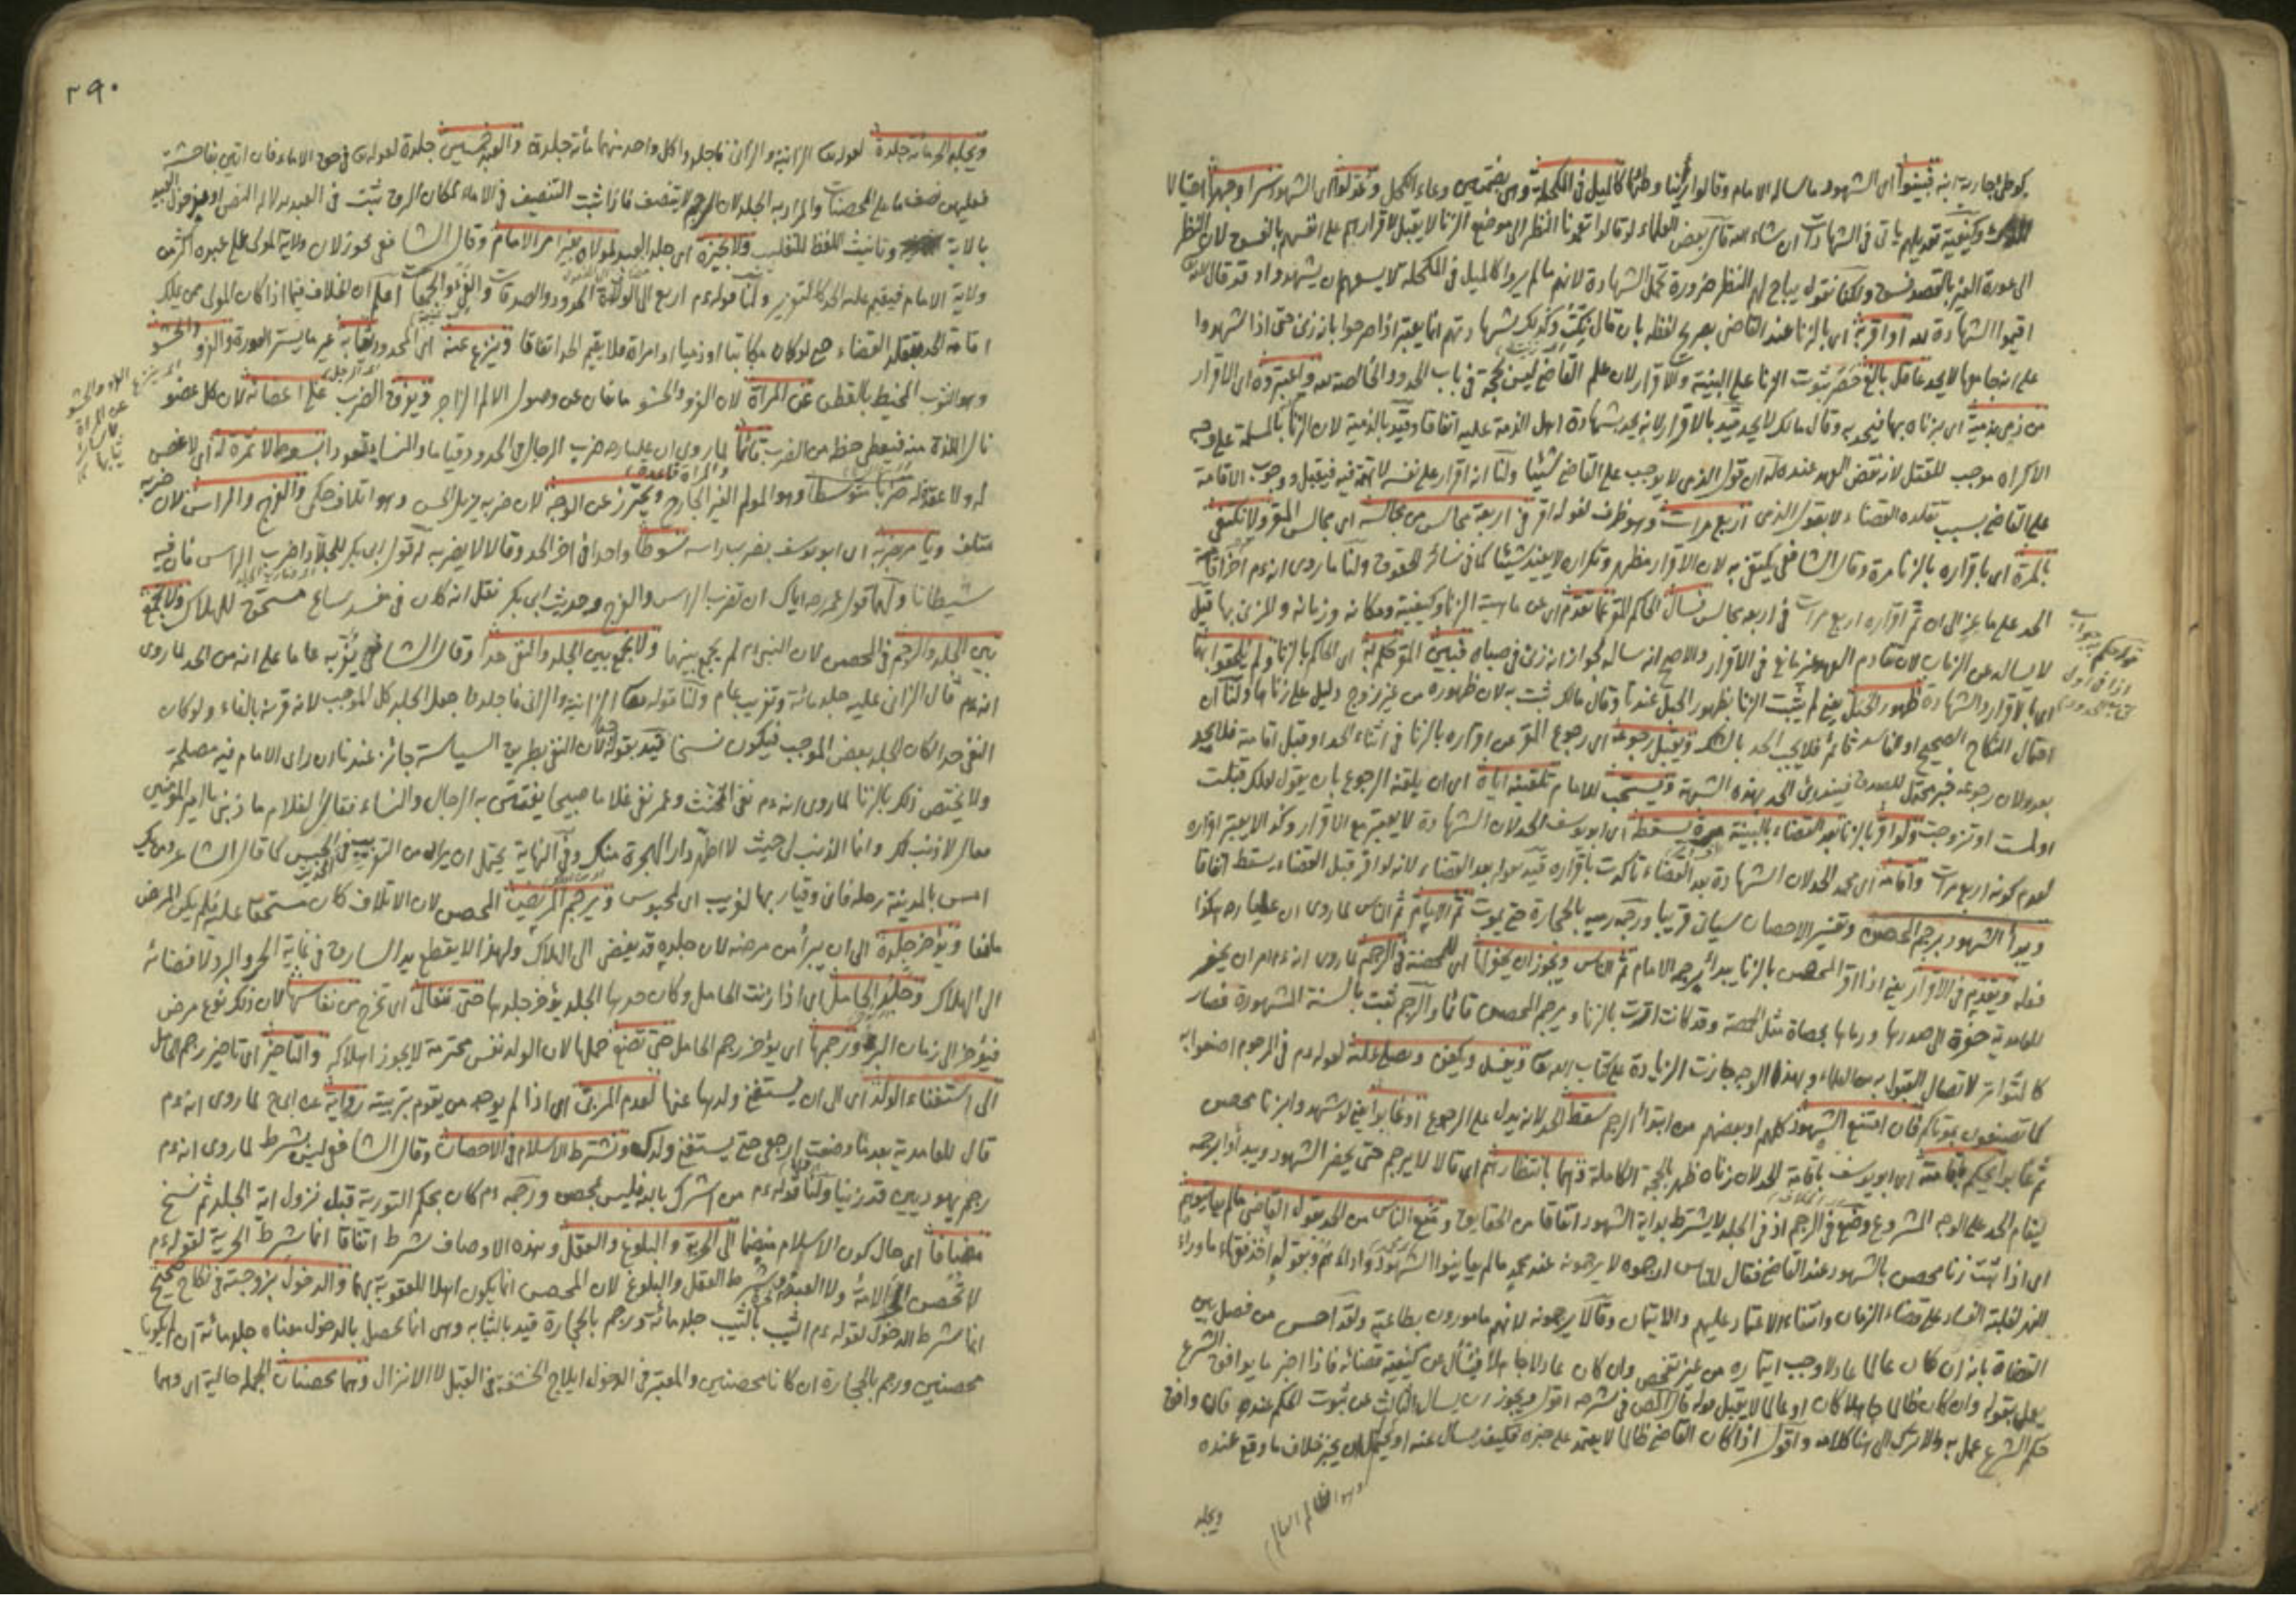 كوطئ جارية ابنه فبينوا اى الشهود ما ساله الامام وقالوا رأينا وطئها كالميل فى المكحلة وهى بضمتين وعاء الكحل وعدلوا اى الشهود سرا وجهرا احتيالا
وكيفية تعديلهم ياتى فى الشهادات ان شاء الله قال بعض العلماء لو قالوا تعمدنا النظر الى موضع الزنا لا يقبل لاقرارهم على انفسهم بالفسوق لان النظر
الى عورة الغير بالقصد فسق ولكنا نقول يباح لهم النظر ضرورة تحمل الشهادة لانهم ما لم يروا كالميل فى المكحلة لا يسعهم ان يشهدوا وقد قال الله تعالى
اقيموا الشهادة لله او اقر به اى بالزنا عند القاضى بصريح لفظه بان قال وكذلك شهادتهم انما يعتبر اذا صرحوا بانه زنى حتى اذا شهدوا
على انه جامعها لا يحد عاقل بالغ حصر ثبوت الزنا على البينة والاقرار لان علم القاضى ليس بحجة فى باب الحدود الخالصة لله واعتبروه اى الاقرار
من ذمى بذمية اى بزناه بها فيحد به وقال مالك لا يحد قيد بالاقرار لانه يحد بشهادة اهل الذمة عليه اتفاقا وقيد بالذمية لان الزنا بالمسلمة على وجه
الاكراه موجب للقتل لانه نقض العهد عنده له ان قول الذمى لا يوجب على القاضى شيئا ولنا انه اقرار على نفسه لا تهمة فيه فيقبل ووجوب الاقامة
على القاضى بسبب تقلده القضاء لا بقول الذمى اربع مرات وهو ظرف لقوله اقر فى اربعة مجالس من مجالسه اى مجالس المقر ولا نكتفى
بالمرة اى باقراره بالزنا مرة وقال الشافعى يكتفى به لان الاقرار مظهر وتكراره لا يفيد شيئا كما فى سائر الحقوق ولنا ما روى انه عم اخر اقامة
الحد على ماعز الى ان تم اقراره اربع مرات فى اربعة مجالس فسال الحاكم المقر عما تقدم اى عن ماهية الزنا وكيفيته ومكانه وزمانه والمزنى بها قيل
لا يساله عن الزمان لان تقادم العهد غير مانع فى الاقرار والاصح انه يساله لجواز انه زنى فى صباه فبين المقر حكم به اى الحاكم بالزنا ولم يلحقوا بهما
اى بالاقرار والشهادة ظهور الحبل يعنى لم يثبت الزنا بظهور الحبل عندنا وقال مالك ثبت به لان ظهوره من غير زوج دليل على زناها ولنا ان
احتمال النكاح الصحيح او الفاسد قائم فلا يجب الحد بالشك ويقبل رجوعه اى رجوع المقر عن اقراره بالزنا فى اثناء الحد او قبل اقامته فلا يحد
بعده لان رجوعه خبر محتمل للصدق فيندرئ الحد بهذه الشبهة ويستحب للامام تلقينه اياه اى ان يلقنه الرجوع بان يقول لعلك قبلت
او لمست او تزوجت ولو اقر بالزنا بعد القضاء بالبينة مرة يسقط اى ابو يوسف الحد لان الشهادة لا يعتبر مع الاقرار وكذا لا يعتبر اقراره
لعدم كونه اربع مرات واقامه اى محمد الحد لان الشهادة بعد القضاء تاكدت باقراره قيد بقوله بعد القضاء لانه لو اقر قبل القضاء يسقط اتفاقا
ويبدأ الشهود برجم المحصن وتفسير الاحصان سياتى قريبا ورجمه رميه بالحجارة حتى يموت ثم الامام ثم الناس لما روى ان عليا رضه هكذا
فعله ويتقدم فى الاقرار يعنى اذا اقر المحصن بالزنا يبدأ برجمه الامام ثم الناس ويجوز ان يحفر لها اى للمحصنة فى الرجم لما روى انه عم امر ان يحفر
للغامدية حفرة الى صدرها ورماها بحصاة مثل الحمصة وقد كانت اقرت بالزنا ويرجم المحصن قائما والرجم ثبت بالسنة المشهورة فصار
كالمتواتر لاتصال القبول به من العلماء وبهذا الوجه جازت الزيادة على كتاب الله تعالى ويغسل ويكفن ويصلى عليه لقوله عم فى المرجوم اصنعوا به
كما تصنعون بموتاكم فان امتنع الشهود كلهم او بعضهم من ابتداء الرجم سقط الحد لانه يدل على الرجوع او غابوا يعنى لو شهدوا بزنا محصن
ثم غابوا يحكم باقامته اى ابو يوسف باقامة الحد لان زناه ظهر بالحجة الكاملة وهما بانتظارهم اى قالا لا يرجم حتى يحضر الشهود ويبدأوا برجمه
ليقام الحد على الوجه المشروع وضع فى الرجم اذ فى الجلد لا يشترط بداية الشهود اتفاقا من الحقايق ومنع الناس من الحد بقول القاضى ما لم يعاينوهم
اى اذا ثبت زنا محصن بالشهود عند القاضى فقال للناس ارجموه لا يرجمونه عند محمد ما لم يعاينوا الشهود واداءهم
لغلبة الفساد على قضاء الزمان وانتفاء الاعتماد عليهم والائتمان وقالا يرجمونه لانهم مامورون بطاعته ولقد احسن من فصل بين
القضاة بانه ان كان عالما عادلا وجب ايتماره من غير تفحص وان كان عادلا جاهلا فيسأل عن كيفية قضائه فاذا اخبر ما يوافق الشرع
يعمل بقوله وان كان ظالما جاهلا كان او عالما لا يقبل قوله قال المص فى شرحه اقول ويجوز ان يسال الثالث عن ثبوت الحكم عنده فان وافق
حكم الشرع عمل به والا ترك الى هنا كلامه واقول اذا كان القاضى ظالما لا يعتمد على خبره فكيف يسأل عنه او يحتمل ان يخبر خلاف ما وقع عنده
وهو الظالم العالم
ويجلد
٢٩٠
ويجلد الحر مائة جلدة لقوله تعالى الزانية والزانى فاجلدوا كل واحد منهما مائة جلدة والعبد خمسين جلدة لقوله تعالى فى حق الاماء فان اتين بفاحشة
فعليهن نصف ما على المحصنات والمراد به الجلد لان الرجم لا يتنصف فاذا ثبت التنصيف فى الاماء لمكان الرق ثبت فى العبد بدلالة النص او دخول العبيد
بالاية وتانيث اللفظ للتغليب ولا نجيزه اى جلد العبد لمولاه بغير امر الامام وقال الشافعى يجوز لان ولاية المولى على عبده اكثر من
ولاية الامام فيقيم عليه الحد كالتعزير ولنا قوله عم اربع الى الولاة الحدود والصدقات والفئ والجمعات اعلم ان الخلاف فيما اذا كان المولى ممن يملك
اقامة الحد بتقلد القضاء حتى لو كان مكاتبا او ذميا او امراة فلا يقيم الحد اتفاقا وينزع عنه اى المحدود ثيابه غير ما يستر العورة والفرو والحشو
وهو الثوب المحيط بالقطن عن المراة لان الفرو والحشو مانعان عن وصول الالم الزاجر ويفرق الضرب على اعضائه لان كل عضو
نال اللذة منه فيعطى حظه من الضرب قائما لما روى ان عليا رضه ضرب الرجال فى الحدود قياما والنساء قعودا بسوط لا ثمرة له اى لا غصن
له ولا عقدة له ضربا متوسطا وهو المولم الغير الجارح ويحترز عن الوجه لان ضربه يزيل الحس وهو اتلاف حكمى والفرج والراس لان ضربه
متلف ويامر بضربه اى ابو يوسف بضرب راسه سوطا واحدا فى اخر الحد وقالا لا يضربه له قول ابى بكر للجلاد اضرب الراس فان فيه
شيطانا ولهما قول عمر رضه اياك ان تضرب الراس والفرج وحديث ابى بكر نقل انه كان فى مفسد ساع مستحق للهلاك ولا يجمع
بين الجلد والرجم فى المحصن لان النبى عم لم يجمع بينهما ولا يجمع بين الجلد والنفى حدا وقال الشافعى يغربه عاما على انه من الحد لما روى
انه عم قال الزانى عليه جلد مائة وتغريب عام ولنا قوله تعالى الزانية والزانى فاجلدوا جعل الجلد كل الموجب لانه قرنه بالفاء ولو كان
النفى حدا لكان الجلد بعض الموجب فيكون نسخا قيد بقوله حدا لان النفى بطريق السياسة جائز عندنا ان راى الامام فيه مصلحة
ولا يختص ذلك بالزنا لما روى انه عم نفى المخنث وعمر نفى غلاما صبيحا يفتتن به الرجال والنساء فقال الغلام ما ذنبى يا امير المؤمنين
فقال لا ذنب لك وانما الذنب لى حيث لا اطهر دار الهجرة منك وفى النهاية يحتمل ان يراد من التغريب فى الحديث الحبس كما قال الشاعر ومن يك
امسى بالمدينة رحله فانى وقيار بها لغريب اى لمحبوس ويرجم المريض المحصن لان الاتلاف كان مستحقا عليه فلم يكن المرض
مانعا ويؤخر جلده الى ان يبرأ من مرضه لان جلده قد يفضى الى الهلاك ولهذا لا يقطع يد السارق فى غاية الحر والبرد لافضائه
الى الهلاك وجلد الحامل اى اذا زنت الحامل وكان حدها الجلد يؤخر جلدها حتى تتعالى اى تخرج من نفاسها لان ذلك نوع مرض
فيؤخر الى زمان البرء ورجمها اى يؤخر رجم الحامل حتى تضع حملها لان الولد نفس محترمة لا يجوز اهلاكه والتاخير اى تاخير رجم الحامل
الى استغناء الولد اى الى ان يستغنى ولدها عنها لعدم المربى اى اذا لم يوجد من يقوم بتربيته رواية عن ابى ح لما روى انه عم
قال للغامدية بعد ما وضعت ارجعى حتى يستغنى ولدك ونشترط الاسلام فى الاحصان وقال الشافعى ليس بشرط لما روى انه عم
رجم يهوديين قد زنيا ولنا قوله عم من اشرك بالله فليس بمحصن ورجمه عم كان بحكم التورية قبل نزول اية الجلد ثم نسخ
مضافا اى حال كون الاسلام منضما الى الحرية والبلوغ والعقل وهذه الاوصاف شرط اتفاقا انما شرط الحرية لقوله عم
لا تحصن الحر الامة ولا العبد الحرة وشرط العقل والبلوغ لان المحصن انما يكون اهلا للعقوبة بهما والدخول بزوجته فى نكاح صحيح
انما شرط الدخول لقوله عم الثيب بالثيب جلد مائة ورجم بالحجارة قيد بالثيابة وهى انما تحصل بالدخول معناه جلد مائة ان لم يكونا
محصنين ورجم بالحجارة ان كانا محصنين والمعتبر فى الدخول ايلاج الحشفة فى القبل لا الانزال وهما محصنان الجملة حالية اى وهما